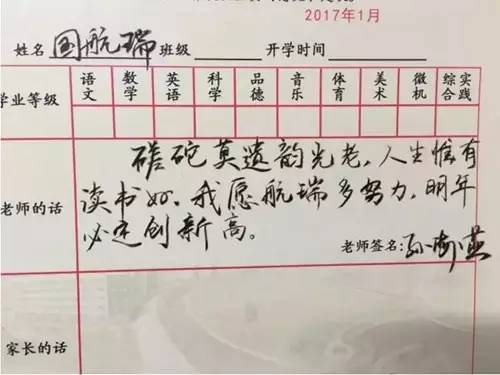 2017年1月
姓名 国航瑞 班级 开学时间
学业等级 语文 数学 英语 科学 品德 音乐 体育 美术 微机 综合实践
磋砣莫遗韵光老,人生惟有
老师的话 读书好.我愿航瑞多努力,明年
必定创新高。
老师签名:孙
家长的话